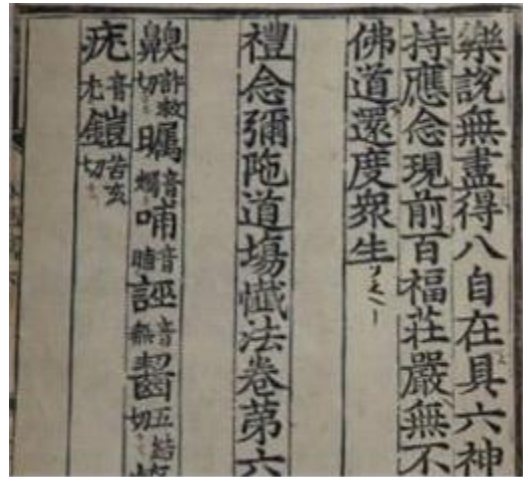 樂說無盡得八自在具六神
持應念現前百福莊嚴無不
佛道還度衆生
禮念彌陁道場懺法卷第六
齅許救切矚音燭哺音誣音無齧五結切
疣音尤鎧苦亥切